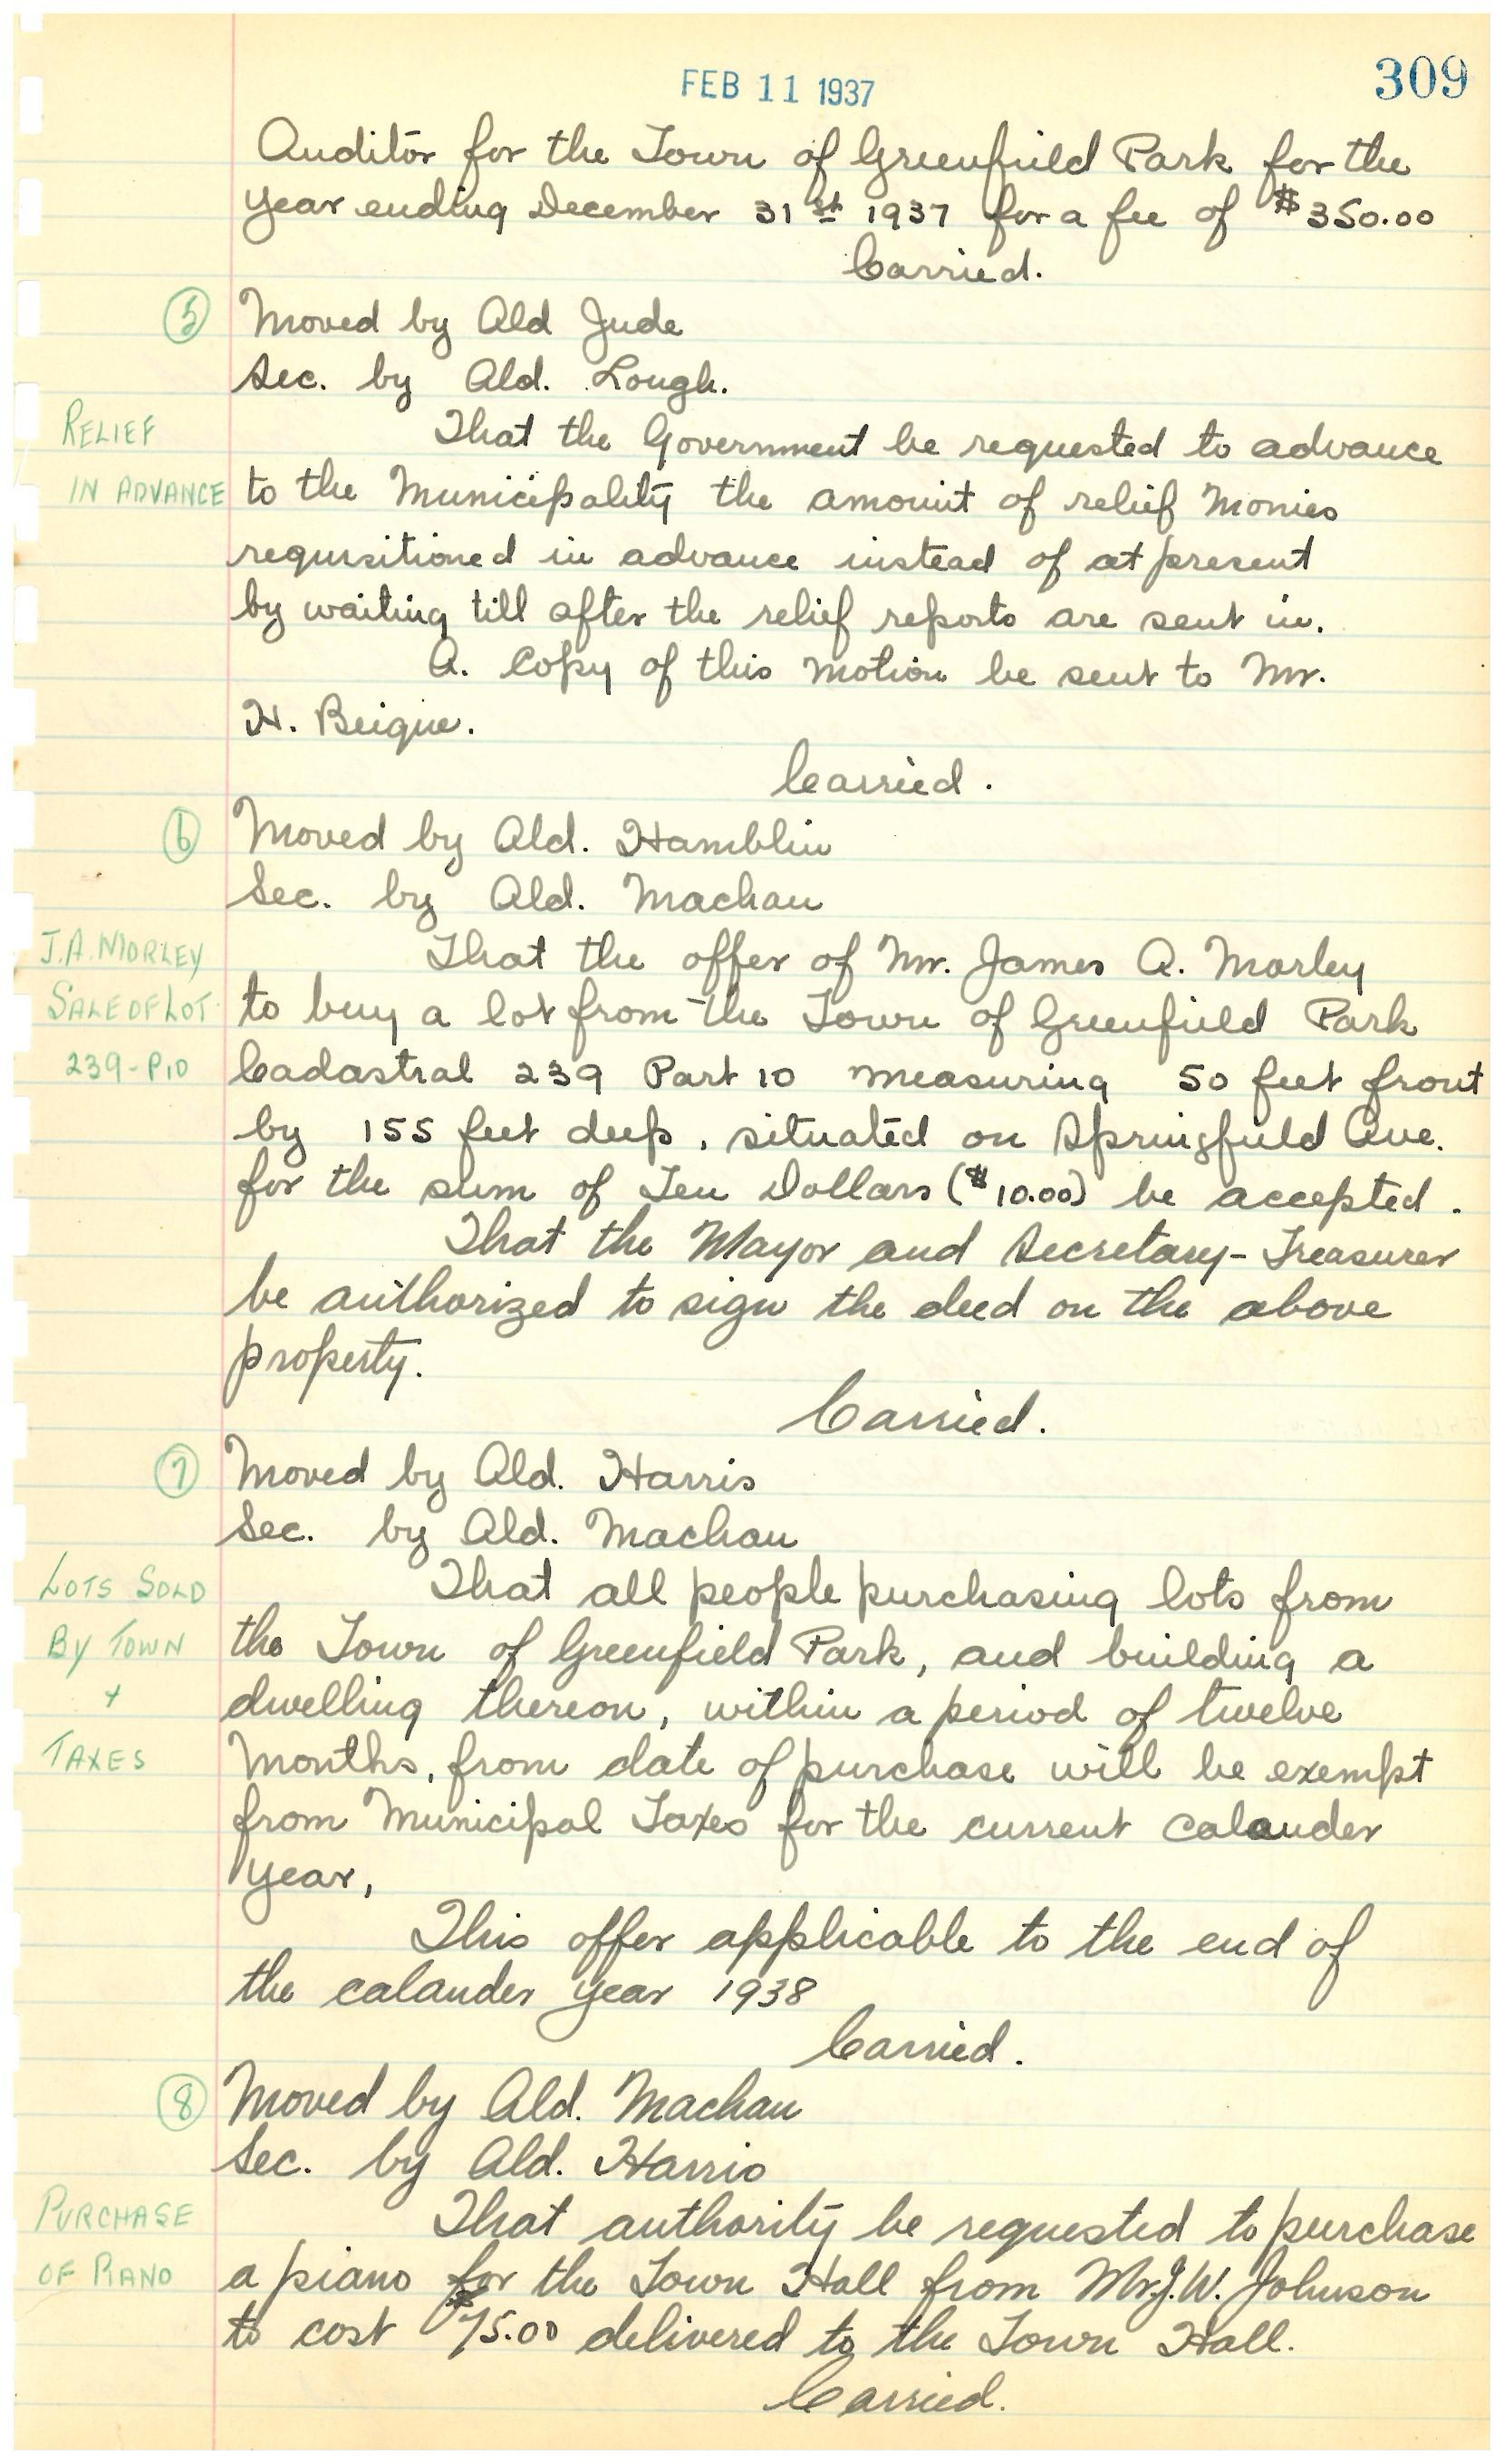 FEB 11 1937
309
Auditor for the Town of Greenfield Park for the
year ending December 31st 1937 for a fee of $350.00
Carried.
5 Moved by Ald Jude
Sec. by Ald. Lough.
RELIEF That the Government be requested to advance
IN ADVANCE to the Municipality the amount of relief monies
requisitioned in advance instead of at present
by waiting till after the relief reports are sent in.
A. Copy of this motion be sent to Mr.
H. Beique.
Carried.
6 Moved by Ald. Hamblin
Sec. by Ald. Machan
J.A. MORLEY That the offer of Mr. James A. Morley
SALE OF LOT to buy a lot from the Town of Greenfield Park
239-P10 Cadastral 239 Part 10 measuring 50 feet front
by 155 feet deep, situated on Springfield Ave.
for the sum of Ten Dollars ($10.00) be accepted.
That the Mayor and Secretary-Treasurer
be authorized to sign the deed on the above
property.
Carried.
7 Moved by Ald. Harris
Sec. by Ald. Machan
LOTS SOLD That all people purchasing lots from
BY TOWN the Town of Greenfield Park, and building a
+ dwelling thereon, within a period of twelve
TAXES months, from date of purchase will be exempt
from Municipal Taxes for the current calander
year,
This offer applicable to the end of
the calander year 1938
Carried.
8 Moved by Ald. Machan
Sec. by Ald. Harris
PURCHASE That authority be requested to purchase
OF PIANO a piano for the Town Hall from Mr J. W. Johnson
to cost $75.00 delivered to the Town Hall.
Carried.